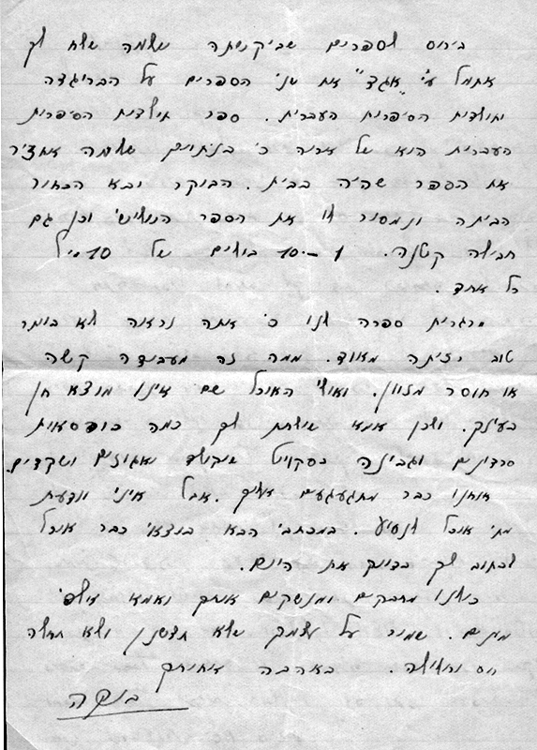 ביחס לספרים שביקשת שלמה שלח לך
אתמול ע״י "אגד" את שני הספרים על הבריגדה
ותולדות הספרות העברית. ספר תולדות הספרות
העברית הוא של אריה כי בנתיים שלמה החזיר
את הספר שהיה בבית. הבוקר יבא הבחור
הביתה ונמסור לו את הספר השלישי וכן גם
חבילה קטנה. ו־10 בולים של 10 מיל
כל אחד.
מרגרית ספרה לנו כי אתה נראה לא ביותר
טוב רזית מאוד. ממה זה מעבודה קשה
או חוסר מזון. ואולי האוכל שם אינו מוצא חן
בעיניך. ולכן אמא שולחת לך כמה קופסאות
סרדינים וגבינה בסקויט שוקולד ואגוזים ושקדים.
אנחנו כבר מתגעגעים אליך. אבל איני יודעת
מתי אוכל לנסוע. במכתבי הבא בודאי כבר אוכל
לכתוב לך בדיוק את היום.
כולנו מחבקים ומנשקים אותך ואמא אלפי
מונים. שמור על עצמך שלא תצטנן ולא תחלה
חס וחלילה. באהבה אחותך